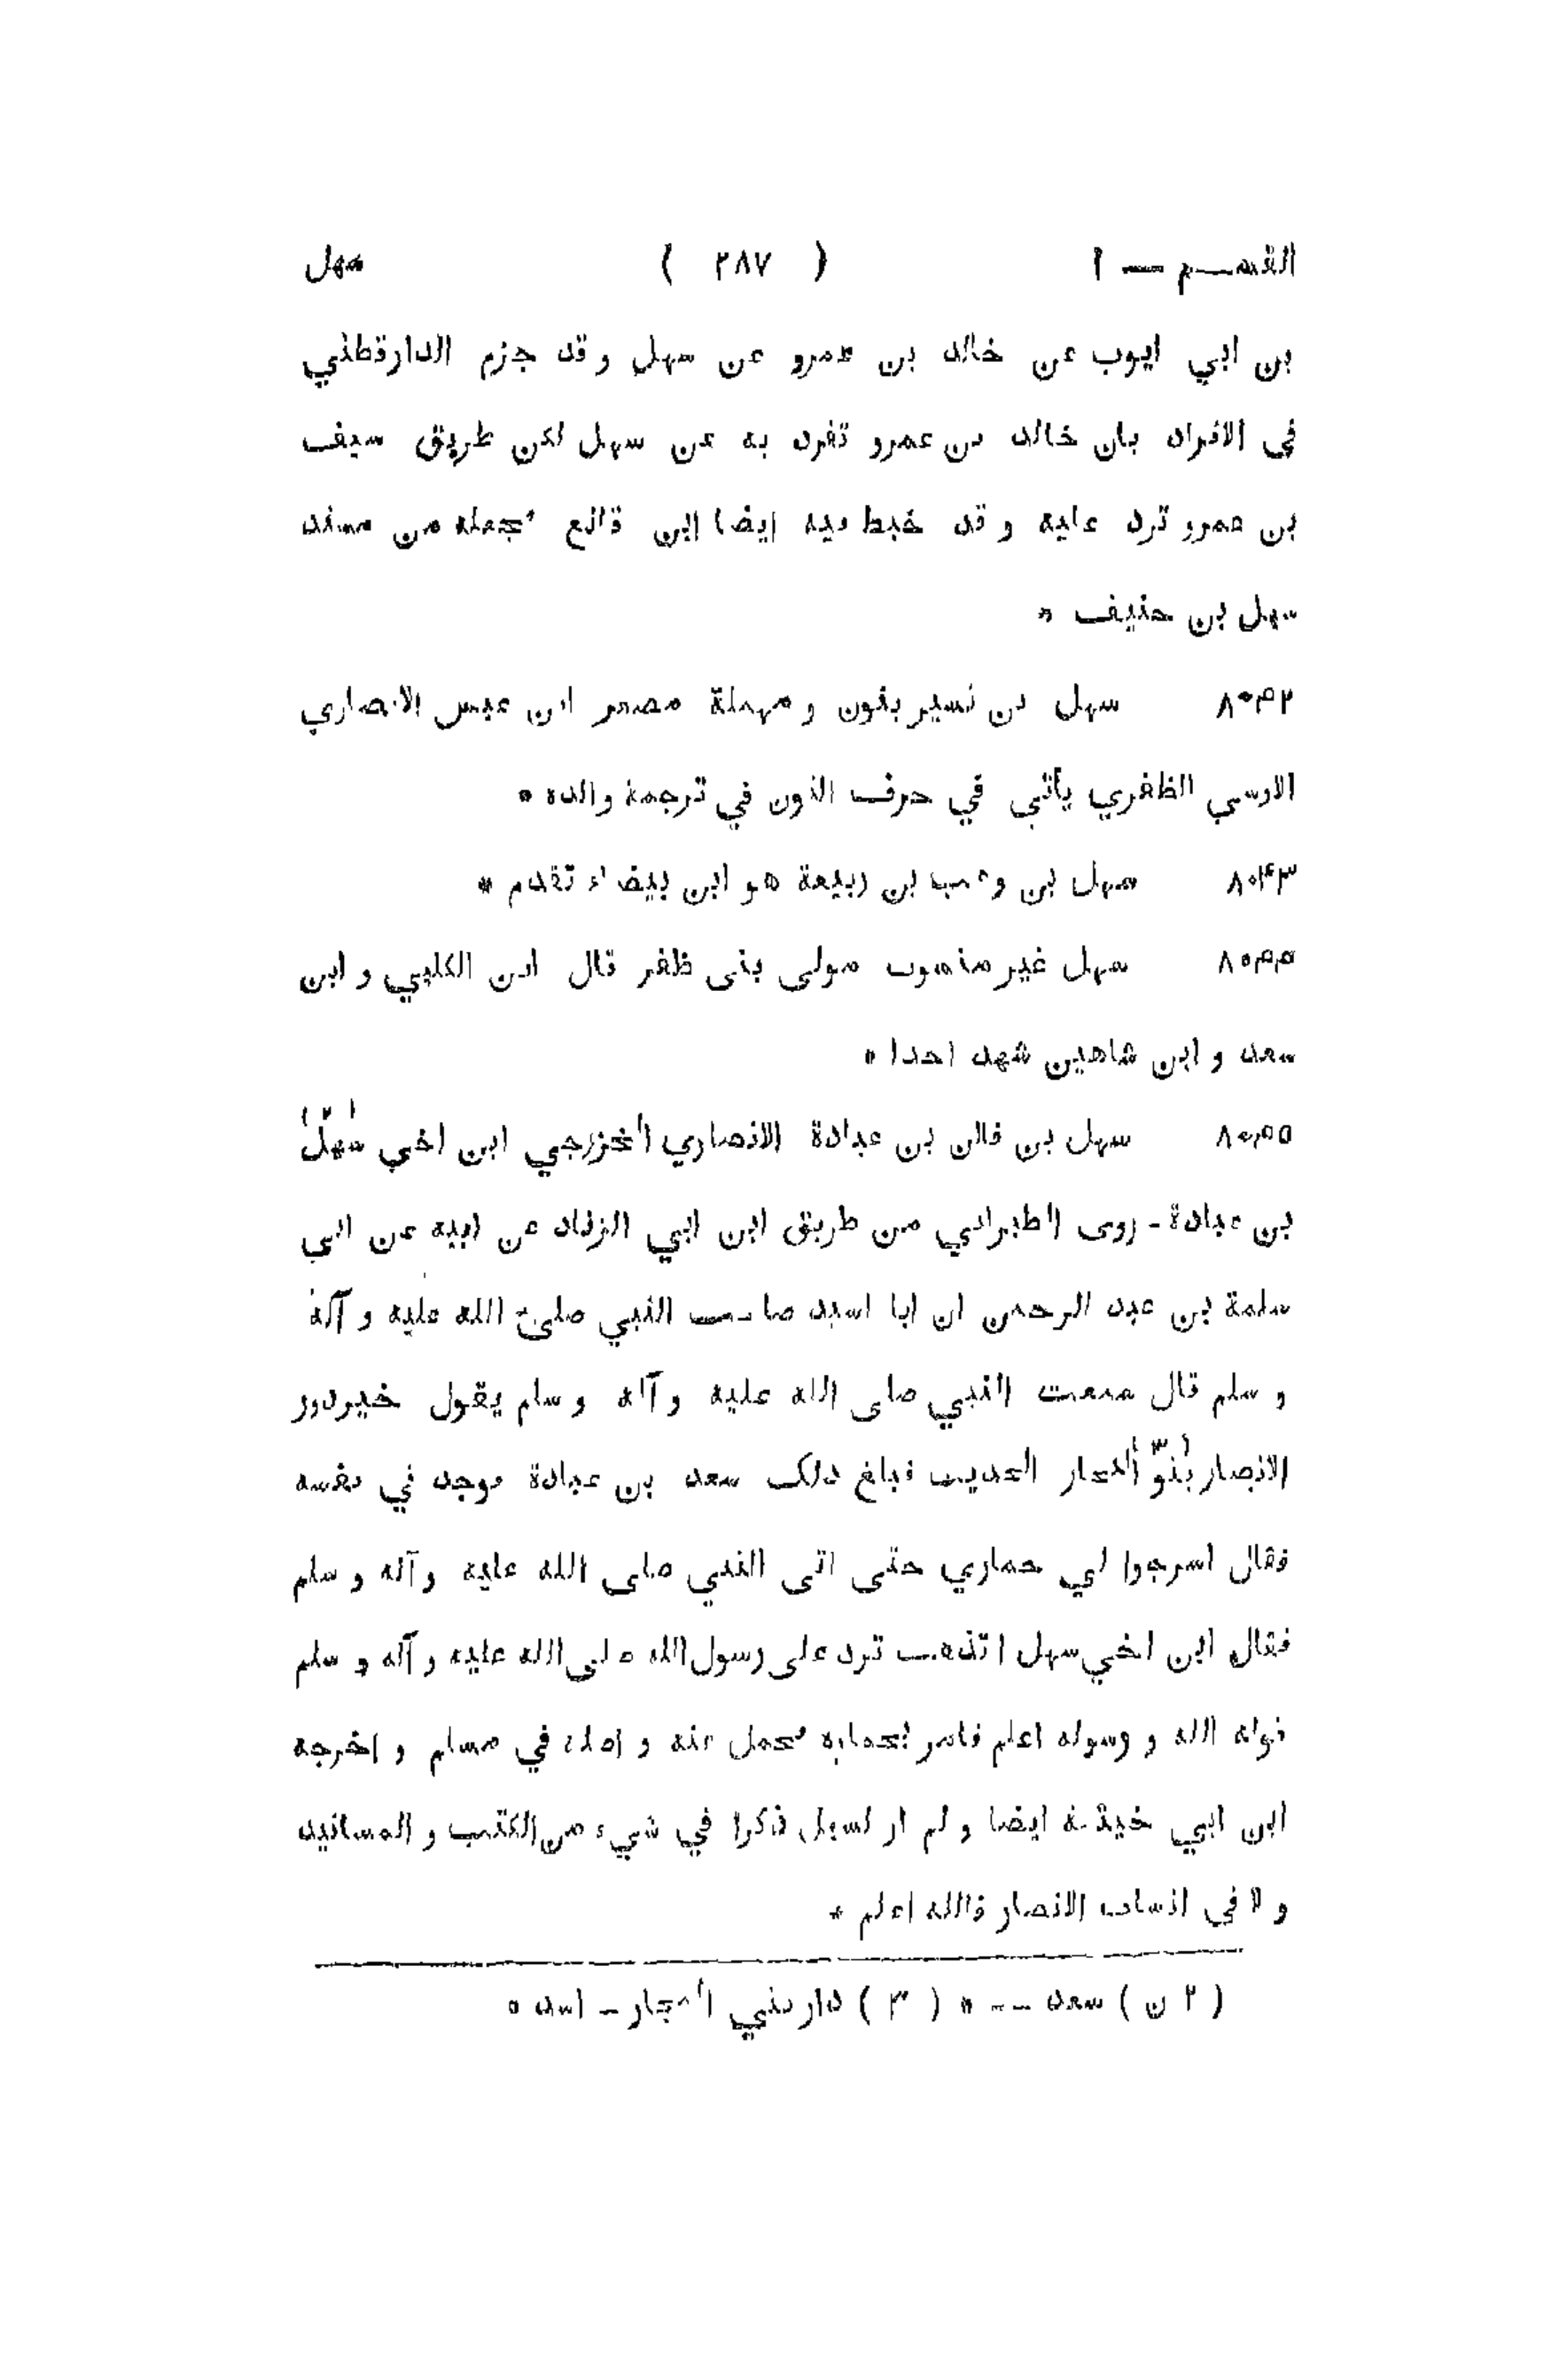 القسم — ١ ( ٢٨٧ ) سهل
بن ابي ايوب عن خالد بن عمرو عن سهل و قد جزم الدارقطني
في الافراد بان خالد بن عمرو تفرد به عن سهل لكن طريق سيف
بن عمرو ترد عليه و قد خبط فيه ايضا ابن قانع فجعله من مسند
سهل بن حنيف *
٨٠٤٢ سهل بن نسير بنون و مهملة مصغر ابن عبس الانصاري
الاوسي الظفري يأتي في حرف النون في ترجمة والده *
٨٠٤٣ سهل بن وهب بن ربيعة هو ابن بيضاء تقدم *
٨٠٤٤ سهل غير منسوب مولى بنى ظفر قال ابن الكلبي و ابن
سعد و ابن شاهين شهد احدا *
٨٠٤٥ سهل بن فلان بن عبادة الانصاري الخزرجي ابن اخي سهل (٢)
بن عبادة - روى الطبراني من طريق ابن ابي الزناد عن ابيه عن ابي
سلمة بن عبد الرحمن ان ابا اسيد صاحب النبي صلى الله عليه و آله
و سلم قال سمعت النبي صلى الله عليه و آله و سلم يقول خير دور
الانصار بنو (٣) النجار الحديث فبلغ ذلك سعد بن عبادة فوجد في نفسه
فقال اسرجوا لي حماري حتى اتى النبي صلى الله عليه و آله و سلم
فقال ابن اخي سهل اتذهب ترد على رسول الله صلى الله عليه و آله و سلم
قوله الله و رسوله اعلم فامر بحماره فحل عنه و اصله في مسلم و اخرجه
ابن ابي خيثمة ايضا و لم ار لسهل ذكرا في شيء من الكتب و المسانيد
و لا في انساب الانصار فالله اعلم *
( ٢ ن ) سعد -- * ( ٣ ) دار بني النجار - اسد *